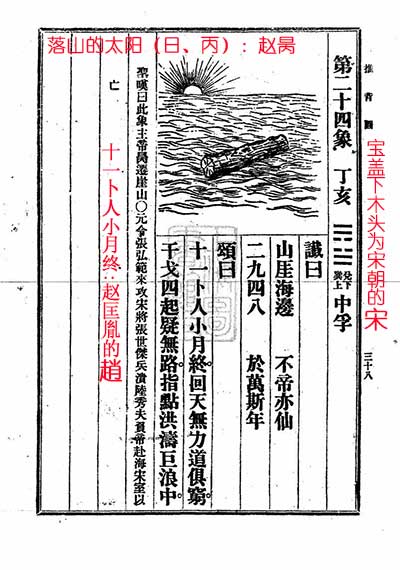 落山的太阳（日、丙）：赵昺
推背圖
三十八
宝盖下木头为宋朝的宋
第二十四象 丁亥
兌下
巽上
中孚
讖曰
山厓海邊 不帝亦仙
二九四八 於萬斯年
頌曰
十一卜人小月終。回天無力道俱窮。
干戈四起疑無路。指點洪濤巨浪中。
聖嘆曰此象主帝昺遷崖山○元令張弘範來攻宋將張世傑兵潰陸秀夫負帝赴海宋室以
亡
十一卜人小月终：赵匡胤的趙